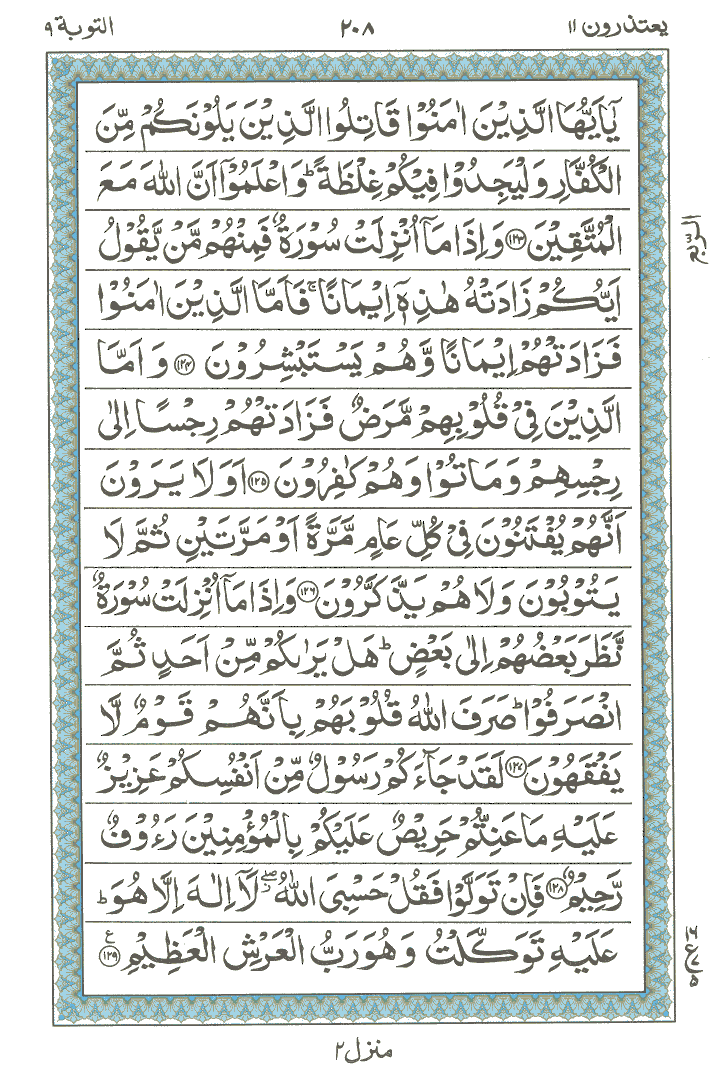 یعتذرون ۱۱
۲۰۸
التوبة ۹
یٰۤاَیُّهَا الَّذِیْنَ اٰمَنُوْا قَاتِلُوا الَّذِیْنَ یَلُوْنَكُمْ مِّنَ
الْكُفَّارِ وَ لْیَجِدُوْا فِیْكُمْ غِلْظَةًؕ وَ اعْلَمُوْۤا اَنَّ اللّٰهَ مَعَ
الْمُتَّقِیْنَ ﴿۱۲۳﴾ وَ اِذَا مَاۤ اُنْزِلَتْ سُوْرَةٌ فَمِنْهُمْ مَّنْ یَّقُوْلُ
اَیُّكُمْ زَادَتْهُ هٰذِهٖۤ اِیْمَانًاۚ فَاَمَّا الَّذِیْنَ اٰمَنُوْا
فَزَادَتْهُمْ اِیْمَانًا وَّ هُمْ یَسْتَبْشِرُوْنَ ﴿۱۲۴﴾ وَ اَمَّا
الَّذِیْنَ فِیْ قُلُوْبِهِمْ مَّرَضٌ فَزَادَتْهُمْ رِجْسًا اِلٰی
رِجْسِهِمْ وَ مَاتُوْا وَ هُمْ كٰفِرُوْنَ ﴿۱۲۵﴾ اَوَ لَا یَرَوْنَ
اَنَّهُمْ یُفْتَنُوْنَ فِیْ كُلِّ عَامٍ مَّرَّةً اَوْ مَرَّتَیْنِ ثُمَّ لَا
یَتُوْبُوْنَ وَ لَا هُمْ یَذَّكَّرُوْنَ ﴿۱۲۶﴾ وَ اِذَا مَاۤ اُنْزِلَتْ سُوْرَةٌ
نَّظَرَ بَعْضُهُمْ اِلٰی بَعْضٍؕ هَلْ یَرٰىكُمْ مِّنْ اَحَدٍ ثُمَّ
انْصَرَفُوْاؕ صَرَفَ اللّٰهُ قُلُوْبَهُمْ بِاَنَّهُمْ قَوْمٌ لَّا
یَفْقَهُوْنَ ﴿۱۲۷﴾ لَقَدْ جَآءَكُمْ رَسُوْلٌ مِّنْ اَنْفُسِكُمْ عَزِیْزٌ
عَلَیْهِ مَا عَنِتُّمْ حَرِیْصٌ عَلَیْكُمْ بِالْمُؤْمِنِیْنَ رَءُوْفٌ
رَّحِیْمٌ ﴿۱۲۸﴾ فَاِنْ تَوَلَّوْا فَقُلْ حَسْبِیَ اللّٰهُ ۖ لَاۤ اِلٰهَ اِلَّا هُوَؕ
عَلَیْهِ تَوَكَّلْتُ وَ هُوَ رَبُّ الْعَرْشِ الْعَظِیْمِ ﴿۱۲۹﴾ ع
الربع
منزل ۲